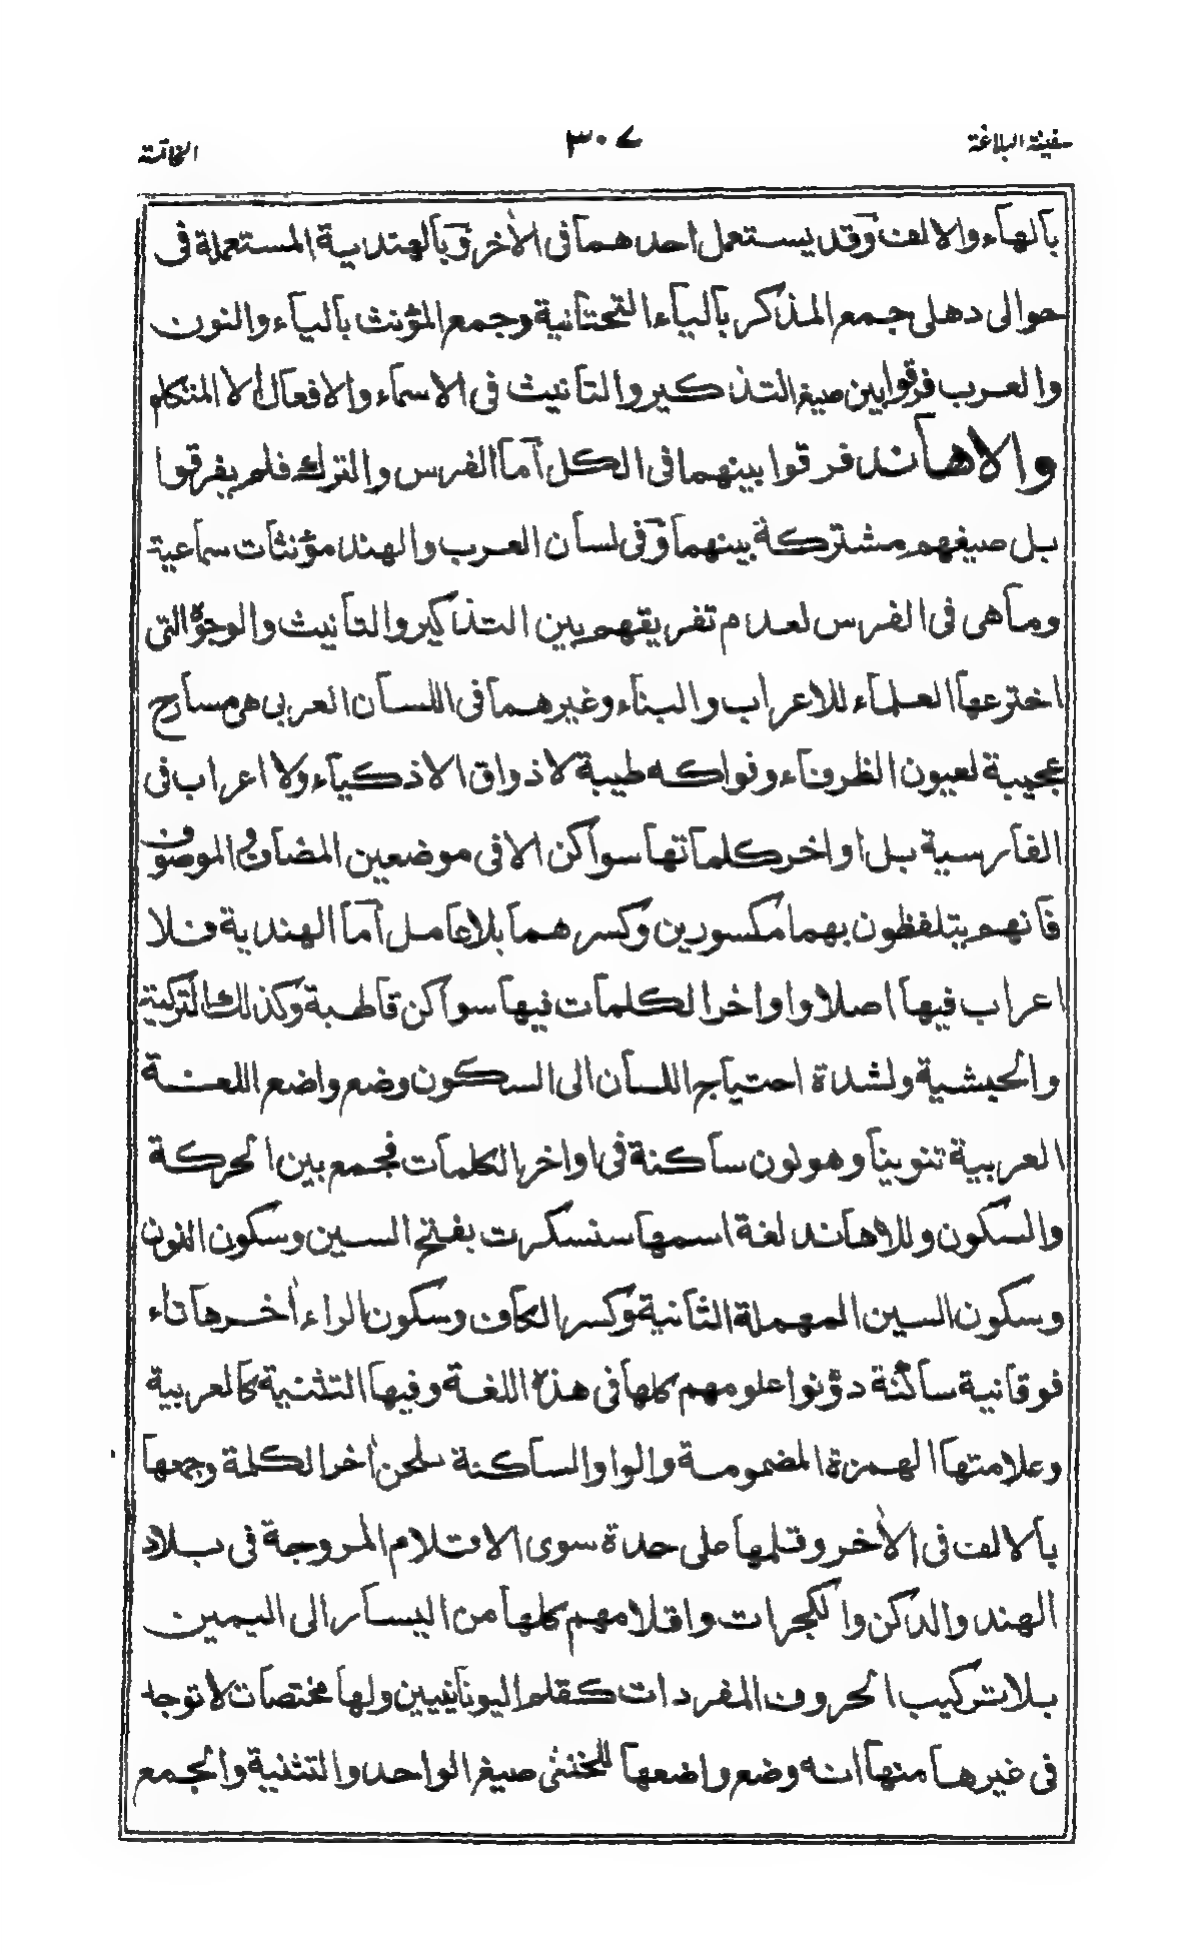 سفينة البلاغة ٣٠٧ الخاتمة
بالهاء والالف وقد يستعمل احدهما فى الأخر وبالهندية المستعملة فى
حوالى دهلى جمع المذكر بالياء التحتانية وجمع المؤنث بالياء والنون
والعرب فرقوا بين صيغ التذكير والتانيث فى الاسماء والافعال ألا المتكلم
والاهاند فرقوا بينهما فى الكل اما الفرس والترك فلم يفرقوا
بل صيغهم مشتركة بينهما وفى لسان العرب والهند مؤنثات سماعية
وما هى فى الفرس لعدم تفريقهم بين التذكير والتأنيث والوجوه التى
اخترعها العلماء للاعراب والبناء وغيرهما فى اللسان العربى هى مسارح
عجيبة لعيون الظرفاء وفواكه طيبة لاذواق الاذكياء ولا اعراب فى
الفارسية بل اواخر كلماتها سواكن الا فى موضعين المضاف والموصوف
فانهم يتلفظون بهما مكسورين وكسرهما بلا عامل اما الهندية فلا
اعراب فيها اصلا واواخر الكلمات فيها سواكن قاطبة وكذلك التركية
والحبشية ولشدة احتياج اللسان الى السكون وضع واضع اللغة
العربية تنوينا وهو نون ساكنة فى اواخر الكلمات فجمع بين الحركة
والسكون وللاهاند لغة اسمها سنسكرت بفتح السين وسكون النون
وسكون السين المهملة الثانية وكسر الكاف وسكون الراء أخرها تاء
فوقانية ساكنة دوّنوا علومهم كلها فى هذه اللغة وفيها التثنية كالعربية
وعلامتها الهمزة المضمومة والواو الساكنة تلحق أخر الكلمة وجمعها
بالالف فى الأخر وقلمها على حدة سوى الاقلام المروجة فى بلاد
الهند والدكن والكجرات واقلامهم كلها من اليسار الى اليمين
بلا تركيب الحروف المفردات كقلم اليونانيين ولها مختصات لا توجد
فى غيرها منها انه وضع واضعها للخنثى صيغ الواحد والتثنية والجمع